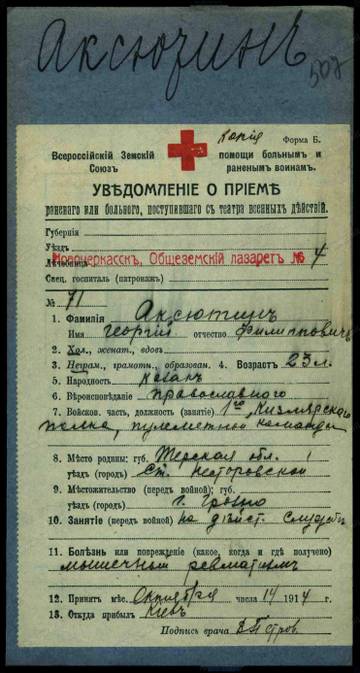 Аксютинъ
507
Копія
Форма Б.
Всероссійскій Земскій Союзъ
помощи больнымъ и раненымъ воинамъ.
УВѢДОМЛЕНІЕ О ПРІЕМѢ
раненаго или больного, поступившаго съ театра военныхъ дѣйствій.
Губернія
Уѣздъ
Новочеркасскъ, Общеземскій лазаретъ № 4
Лѣчебница
Спец. госпиталь (патронажъ)
№ 71
1. Фамилія Аксютинъ
Имя Георгій отчество Филипповичъ
2. Хол., женат., вдовъ
3. Неграм., грамотн., образован. 4. Возрастъ 23 л.
5. Народность казакъ
6. Вѣроисповѣданіе православнаго
7. Войсков. часть, должность (занятіе) 1го Кизлярскаго
полка, пулеметной команды
8. Мѣсто родины: губ. Терская обл.
уѣздъ (городъ) ст. Несторовской
9. Мѣстожительство (передъ войной): губ.
уѣздъ (городъ) г. Грозно
10. Занятіе (передъ войной) на дѣйст. службѣ
11. Болѣзнь или поврежденіе (какое, когда и гдѣ получено)
мышечный ревматизмъ
12. Принятъ мѣс. Октября числа 14 1914 г.
13. Откуда прибылъ Кіевъ
Подпись врача В Петров.